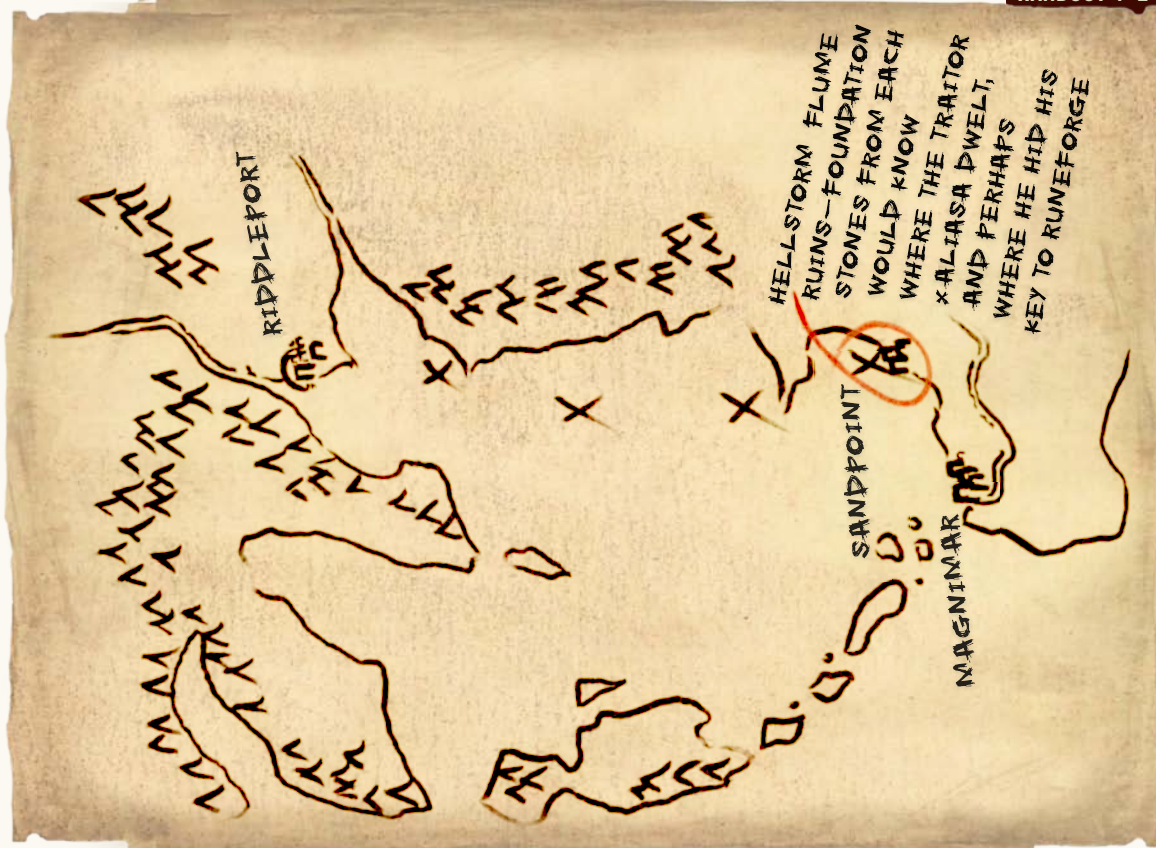 HELLSTORM FLUME
RUINS—FOUNDATION
STONES FROM EACH
WOULD KNOW
WHERE THE TRAITOR
XALIASA DWELT,
AND PERHAPS
WHERE HE HID HIS
KEY TO RUNEFORGE
RIDDLEPORT
SANDPOINT
MAGNIMAR